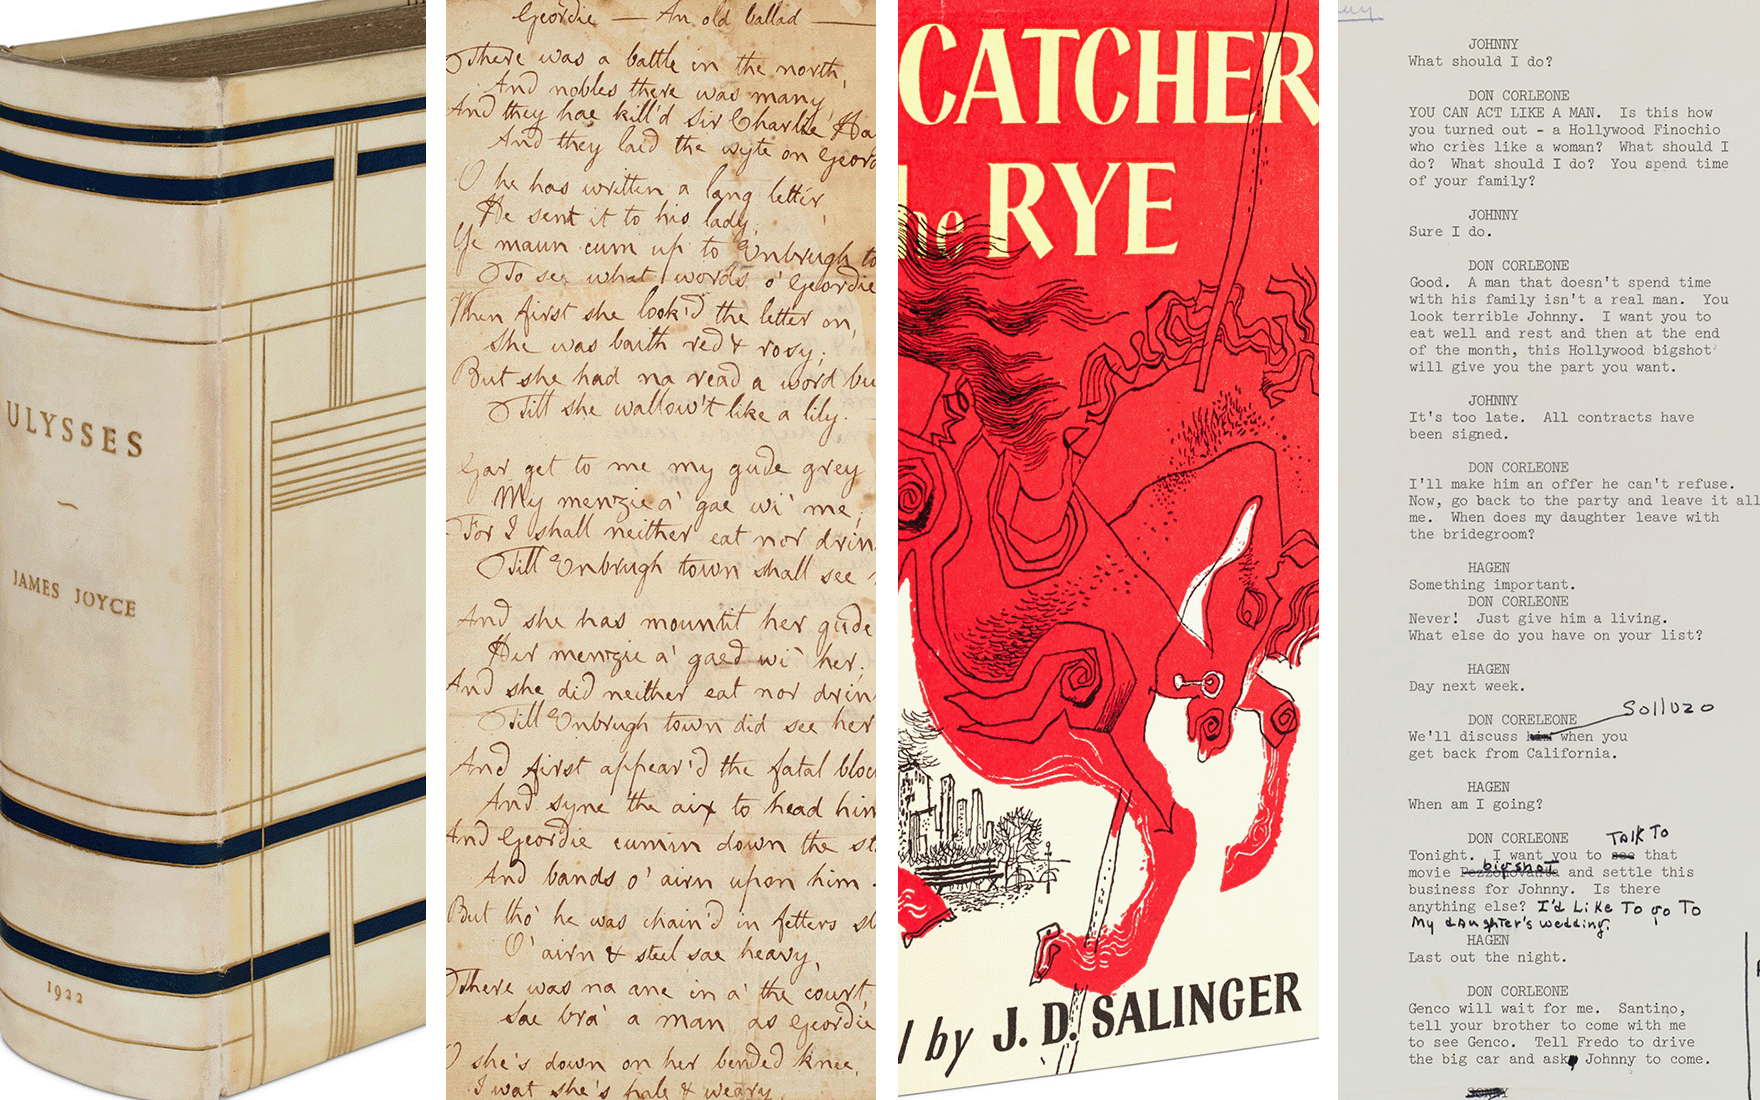 ULYSSES
JAMES JOYCE
1922
Geordie — An old ballad —
There was a battle in the north,
And nobles there was many,
And they hae kill'd Sir Charlie Ha
And they laid the wyte on Geord
O he has written a lang letter,
He sent it to his lady;
Ye maun cum up to Enbrugh to
To see what words o' Geordie
When first she look'd the letter on,
She was baith red & rosy;
But she had na read a word bu
Till she wallow't like a lily.
Gar get to me my gude grey
My menzie a' gae wi' me;
For I shall neither eat nor drin
Till Enbrugh town shall see
And she has mountit her gude
Her menzie a' gaed wi' her;
And she did neither eat nor drin
Till Enbrugh town did see her
And first appear'd the fatal bloc
And syne the aix to head him
And Geordie cumin down the st
And bands o' airn upon him.
But tho' he was chain'd in fetters st
O' airn & steel sae heavy,
There was na ane in a' the court,
Sae bra' a man as Geordie
O she's down on her bended knee,
I wat she's pale & weary,
CATCHER
he RYE
l by J. D. SALINGER
JOHNNY
What should I do?
DON CORLEONE
YOU CAN ACT LIKE A MAN. Is this how
you turned out - a Hollywood Finochio
who cries like a woman? What should I
do? What should I do? You spend time
of your family?
JOHNNY
Sure I do.
DON CORLEONE
Good. A man that doesn't spend time
with his family isn't a real man. You
look terrible Johnny. I want you to
eat well and rest and then at the end
of the month, this Hollywood bigshot
will give you the part you want.
JOHNNY
It's too late. All contracts have
been signed.
DON CORLEONE
I'll make him an offer he can't refuse.
Now, go back to the party and leave it all
me. When does my daughter leave with
the bridegroom?
HAGEN
Something important.
DON CORLEONE
Never! Just give him a living.
What else do you have on your list?
HAGEN
Day next week.
DON CORELEONE Sollozo
We'll discuss him when you
get back from California.
HAGEN
When am I going?
DON CORLEONE TALK TO
Tonight. I want you to see that
bigshot
movie Pezzonovanta and settle this
business for Johnny. Is there
anything else? I'd Like To go To
My dAughter's wedding.
HAGEN
Last out the night.
DON CORLEONE
Genco will wait for me. Santino,
tell your brother to come with me
to see Genco. Tell Fredo to drive
the big car and ask Johnny to come.
SONNY